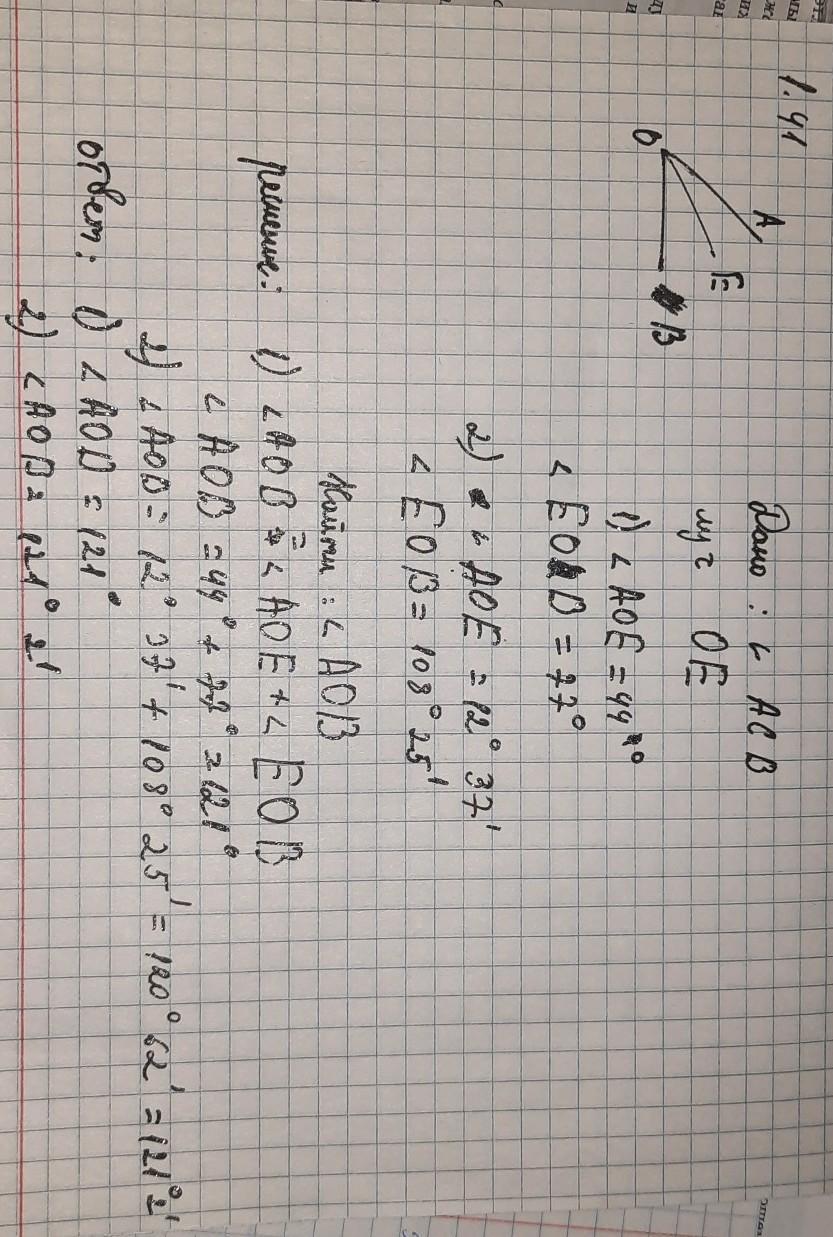 1.41
A
E
O
B
Дано: ∠ ACB
луч OE
1) ∠ AOE = 44°
∠ EOB = 77°
2) ∠ AOE = 12° 37'
∠ EOB = 108° 25'
Найти: ∠ AOB
решение: 1) ∠ AOB = ∠ AOE + ∠ EOB
∠ AOB = 44° + 77° = 121°
2) ∠ AOB = 12° 37' + 108° 25' = 120° 62' = 121° 2'
ответ: 1) ∠ AOB = 121°
2) ∠ AOB = 121° 2'